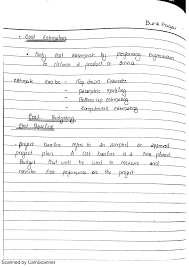 Cost Estimating
- Any cost incurred by performing organization
to deliver a product or service
estimate can be - Top down Estimate
- parametric modeling
- Bottom up estimating
- Computerized estimating
Cost Budgeting
Cost Baseline
- project baseline refers to an accepted or approved
project plan. A cost baseline is a time phased
Budget that will be used to measure and
monitor cost performance on the project
Scanned by CamScanner